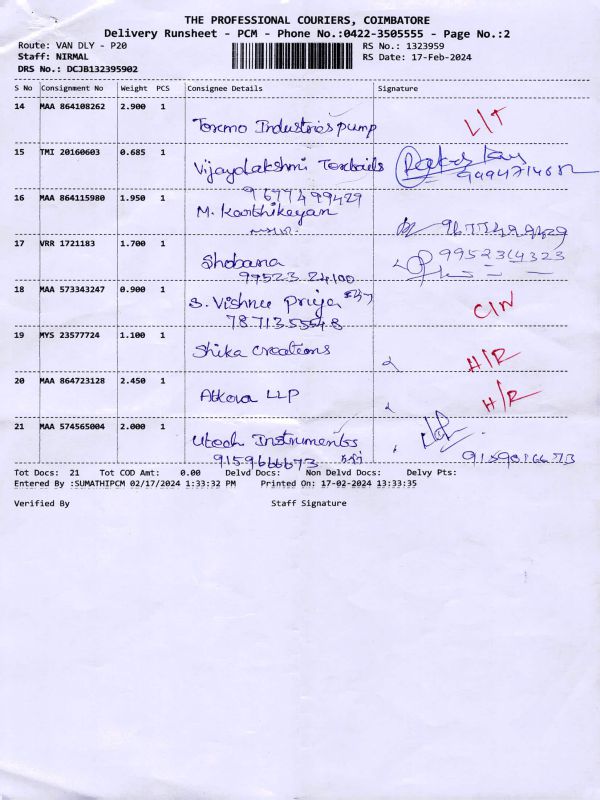 THE PROFESSIONAL COURIERS, COIMBATORE
Delivery Runsheet - PCM - Phone No.:0422-3505555 - Page No.:2
Route: VAN DLY - P20 RS No.: 1323959
Staff: NIRMAL RS Date: 17-Feb-2024
DRS No.: DCJB132395902
S No Consignment No Weight PCS Consignee Details Signature
14 MAA 864108262 2.900 1
Industries pump L/T
15 TMI 20160603 0.685 1
Vijayalakshmi
9677499429
16 MAA 864115980 1.950 1
M. Karthikeyan 9677499429
17 VRR 1721183 1.700 1
Shobana 9952364323
99523 24100
18 MAA 573343247 0.900 1
S. Vishnu Priya
7871355548
19 MYS 23577724 1.100 1
Shika Creations H/R
20 MAA 864723128 2.450 1
LLP H/R
21 MAA 574565004 2.000 1
Utech Instruments
9159666673
Tot Docs: 21 Tot COD Amt: 0.00 Delvd Docs: Non Delvd Docs: Delvy Pts:
Entered By :SUMATHIPCM 02/17/2024 1:33:32 PM Printed On: 17-02-2024 13:33:35
Verified By Staff Signature